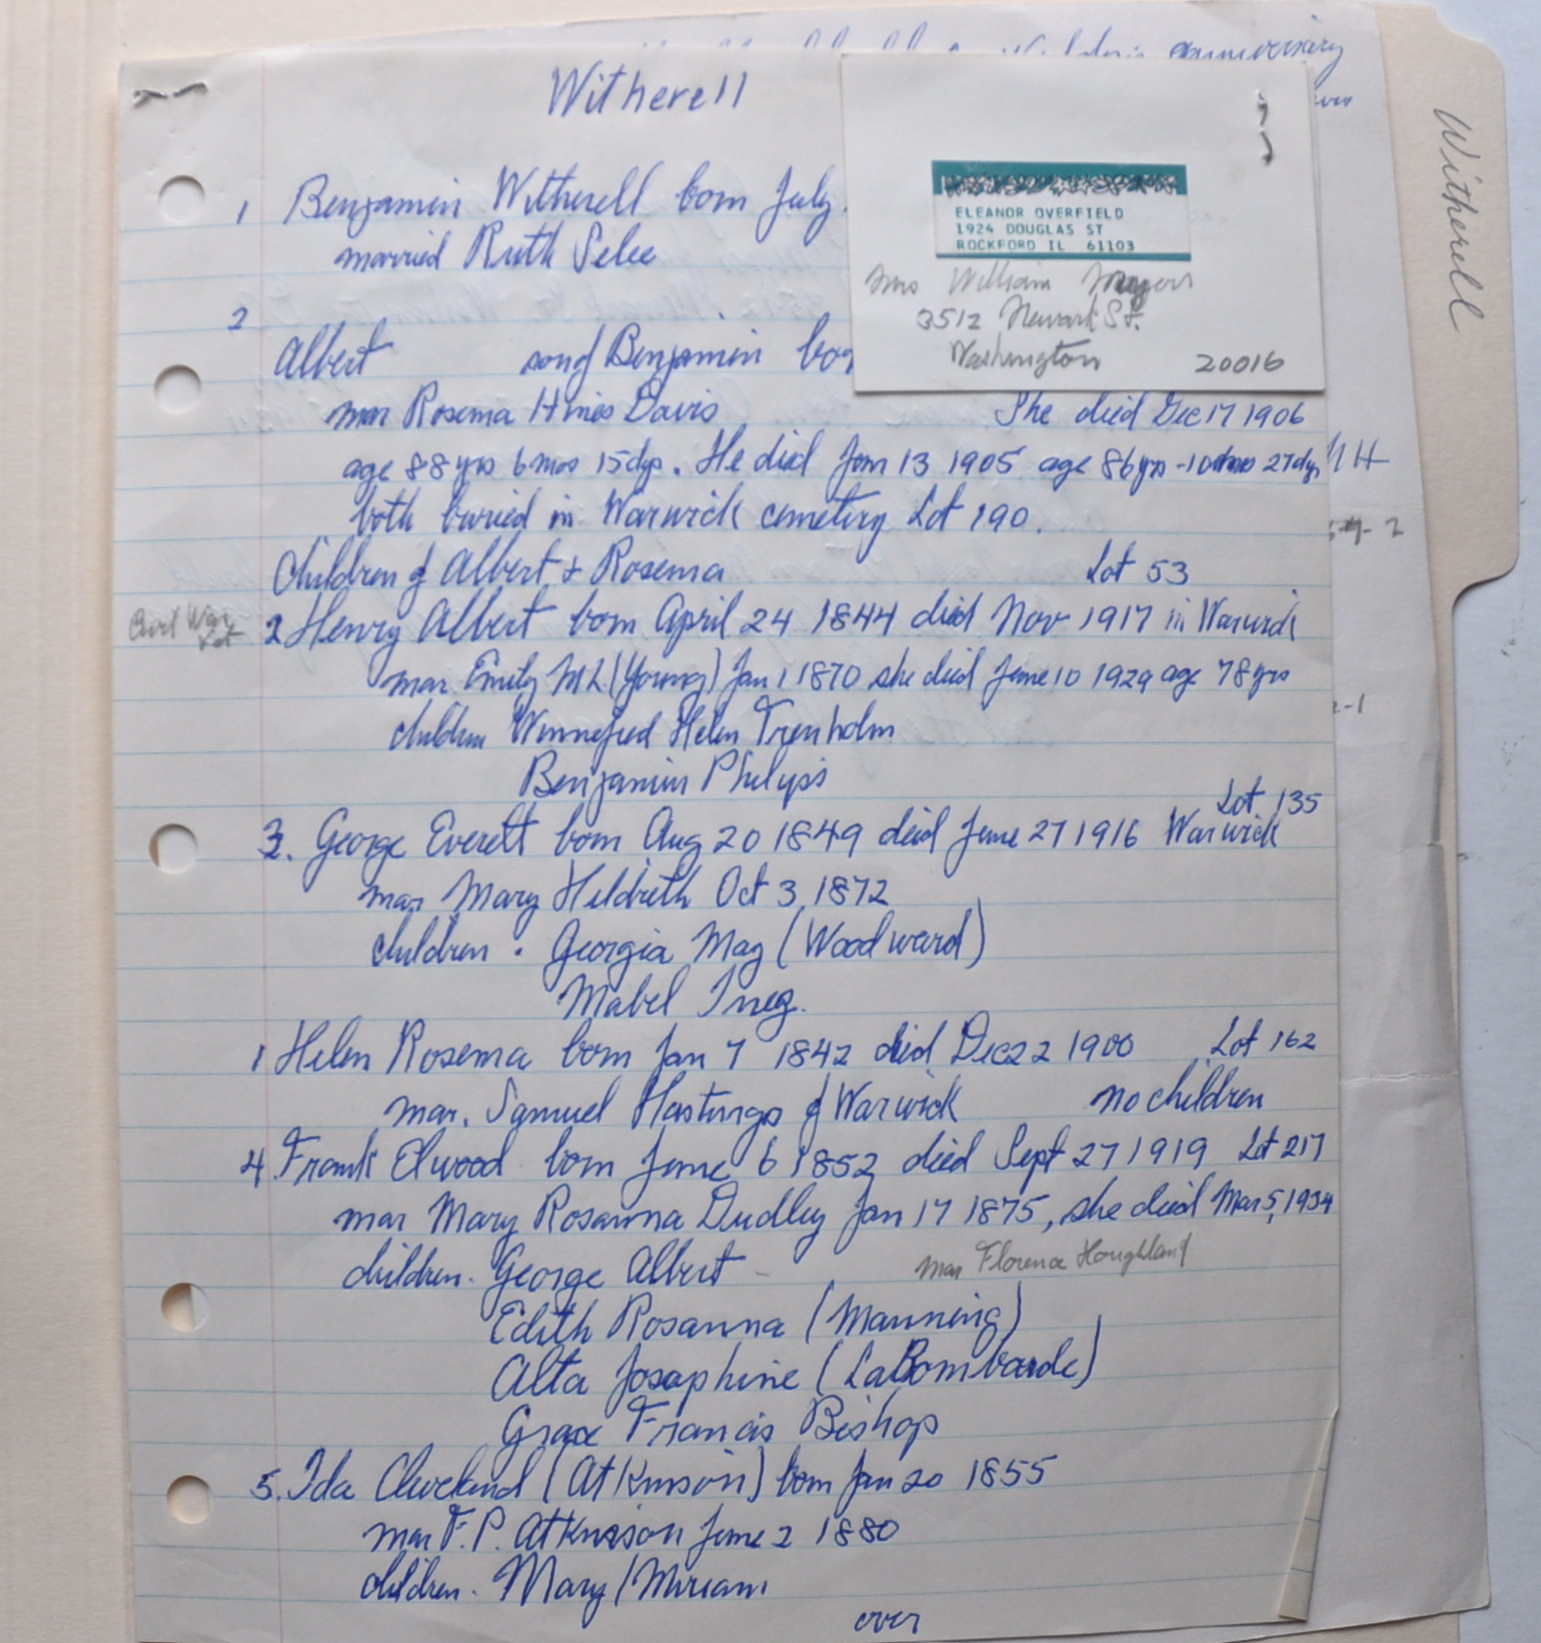 anniversary
Witherell
Witherell
1 Benjamin Witherell born July
married Ruth Selee
ELEANOR OVERFIELD
1924 DOUGLAS ST
ROCKFORD IL 61103
Mrs William Meyers
3512 Newark St.
Washington 20016
2
Albert son of Benjamin born
mar Rosema Hines Davis She died Dec 17 1906
age 88 yrs 6 mos 15 dys. He died Jan 13 1905 age 86 yrs - 10 mos 27 dys
both buried in Warwick cemetery Lot 190.
Children of Albert & Rosema Lot 53
Civil War
2 Henry Albert born April 24 1844 died Nov 1917 in Warwick
mar Emily M L (Young) Jan 1 1870 she died June 10 1929 age 78 yrs
children Winnefred Helen Trenholm
Benjamin Phelps
Lot 135
3. George Everett born Aug 20 1849 died June 27 1916 Warwick
mar Mary Hildreth Oct 3, 1872
children . Georgia May (Woodward)
Mabel Inez.
1 Helen Rosema born Jan 7 1842 died Dec 22 1900 Lot 162
mar. Samuel Hastings of Warwick no children
4 Frank Elwood born June 6 1852 died Sept 27 1919 Lot 217
mar Mary Rosanna Dudley Jan 17 1875, she died Mar 5, 1934
children. George Albert - mar Florence Houghland
Edith Rosanna (Manning)
Alta Josaphine (LaBombarde)
Grace Francis Bishop
5. Ida Cleveland (Atkinson) born Jan 20 1855
mar F. P. Atkinson June 2 1880
children. Mary / Miriam
over